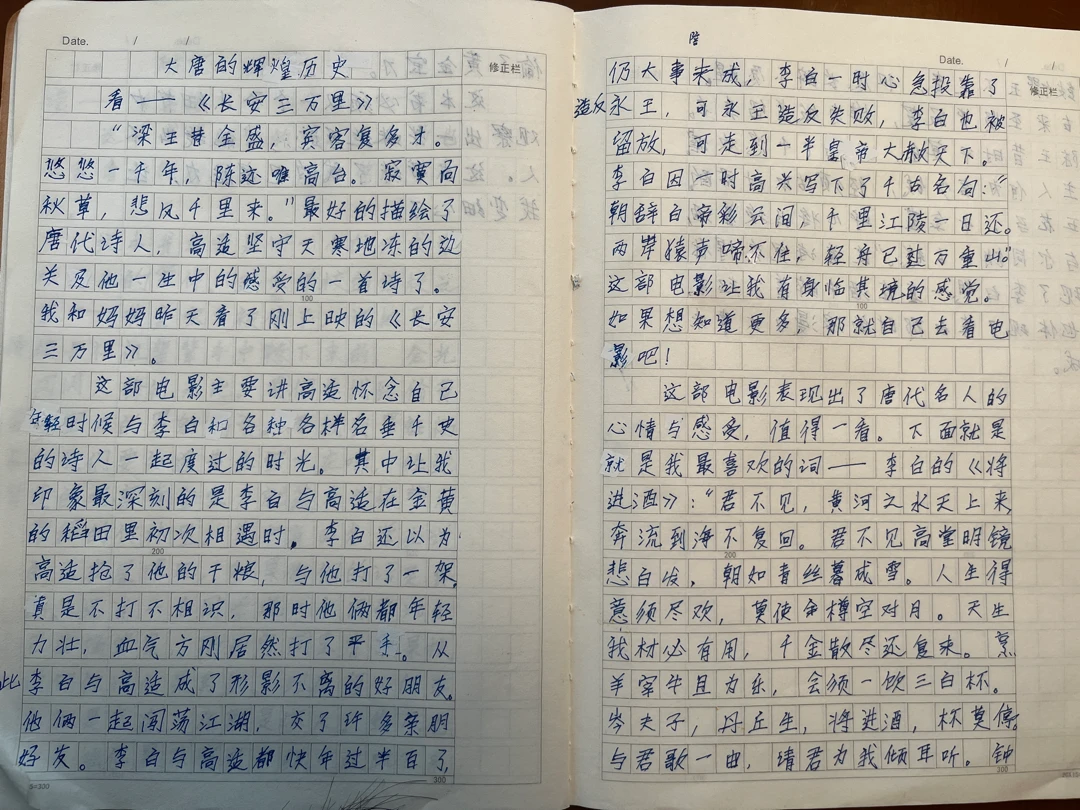 Date. / /
大唐的辉煌历史
修正栏
看——《长安三万里》
“梁王昔全盛，宾客复多才。
悠悠一千年，陈迹唯高台。寂寞向
秋草，悲风千里来。”最好的描绘了
唐代诗人，高适坚守天寒地冻的边
关及他一生中的感受的一首诗了。
100
我和妈妈昨天看了刚上映的《长安
三万里》。
这部电影主要讲高适怀念自己
年轻时候与李白和各种各样名垂千史
的诗人一起度过的时光。其中让我
印象最深刻的是李白与高适在金黄
的稻田里初次相遇时。李白还以为
200
高适抢了他的干粮，与他打了一架，
真是不打不相识，那时他俩都年轻
力壮，血气方刚居然打了平手。从
此李白与高适成了形影不离的好朋友。
他俩一起闯荡江湖，交了许多亲朋
好友。李白与高适都快年过半百了，
300
Date. / /
仍大事未成，李白一时心急投靠了
修正栏
造反永王，可永王造反失败，李白也被
留放，可走到一半皇帝大赦天下。
李白因一时高兴写下了千古名句：“
朝辞白帝彩云间，千里江陵一日还。
两岸猿声啼不住，轻舟已过万重山。”
这部电影让我有身临其境的感觉。
100
如果想知道更多，那就自己去看电
影吧！
这部电影表现出了唐代名人的
心情与感受，值得一看。下面就是
就是我最喜欢的词——李白的《将
进酒》：“君不见，黄河之水天上来，
奔流到海不复回。君不见高堂明镜
200
悲白发，朝如青丝暮成雪。人生得
意须尽欢，莫使金樽空对月。天生
我材必有用，千金散尽还复来。烹
羊宰牛且为乐，会须一饮三白杯。
岑夫子，丹丘生，将进酒，杯莫停。
与君歌一曲，请君为我倾耳听。钟
300